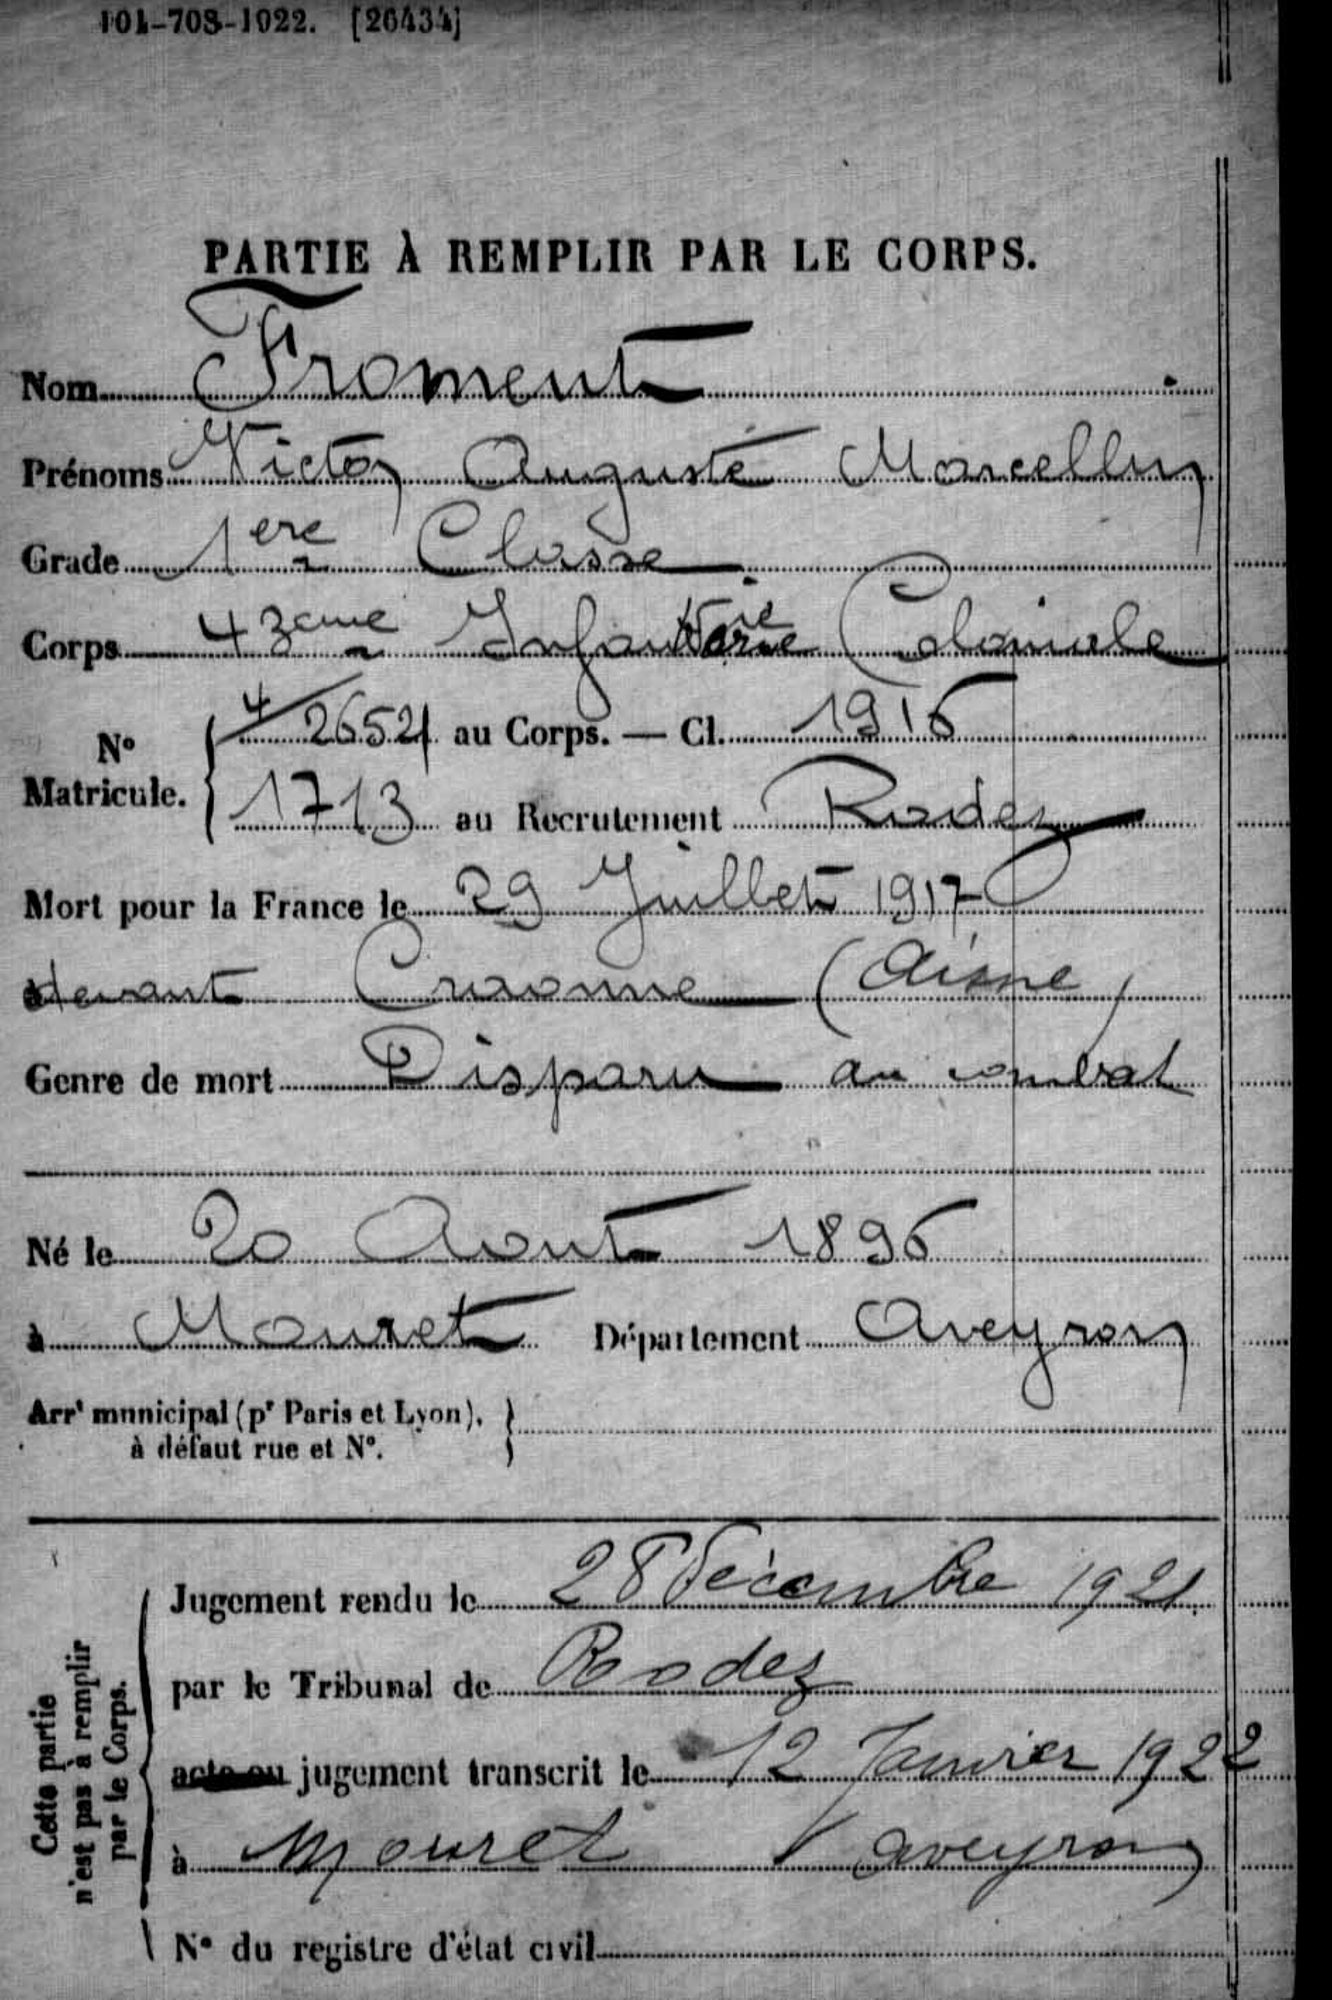 101-708-1022. [26434]
PARTIE À REMPLIR PAR LE CORPS.
Nom Froment
Prénoms Victor Auguste Marcellin
Grade 1ere Classe
Corps 43eme Infanterie Coloniale
N° Matricule. { 4/26521 au Corps. — Cl. 1916
1713 au Recrutement Rodez
Mort pour la France le 29 Juillet 1917
devant Craonne (Aisne)
Genre de mort Disparu au combat
Né le 20 Aout 1896
à Mouret Département Aveyron
Arrt municipal (pr Paris et Lyon), à défaut rue et N°. }
Cette partie n'est pas à remplir par le Corps.
Jugement rendu le 28 Décembre 1921.
par le Tribunal de Rodez
acte ou jugement transcrit le 12 Janvier 1922
à Mouret Aveyron
N° du registre d'état civil